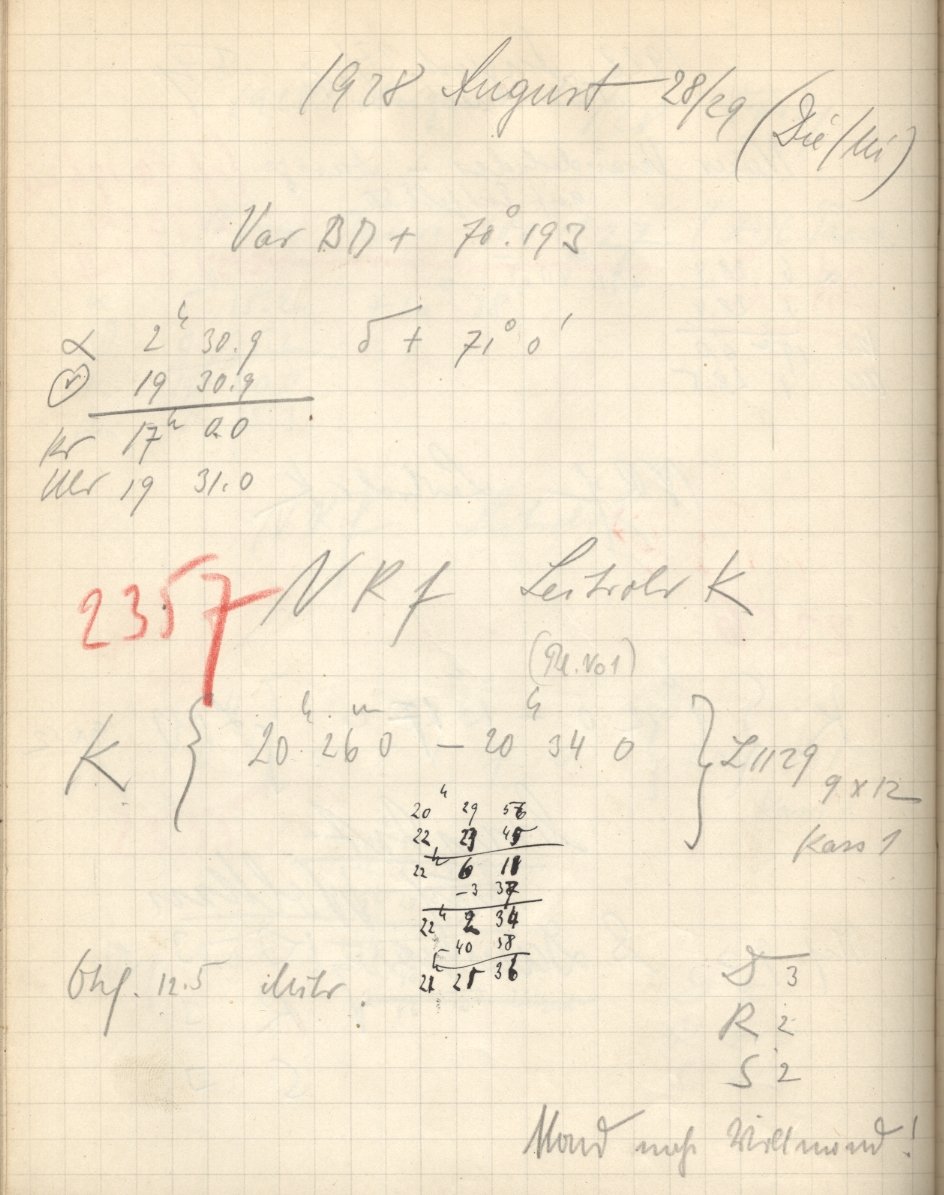 1928 August 28/29 (Die/Mi)
Var BD + 70°.193
α 2h 30.9 δ + 71° 0'
19 30.9
17h 0.0
Uhr 19 31.0
2357 N R f Leitrohr K
(Pl. No 1)
K { 20h 26m 0 – 20h 34 0 } L 1129 9 x 12
Kass 1
20h 29 56
22 45
22h 6 11
-3 37
22h 2 34
40 58
36
12.5 Mitr.
D 3
R 2
S 2
Mond nahe Vollmond!